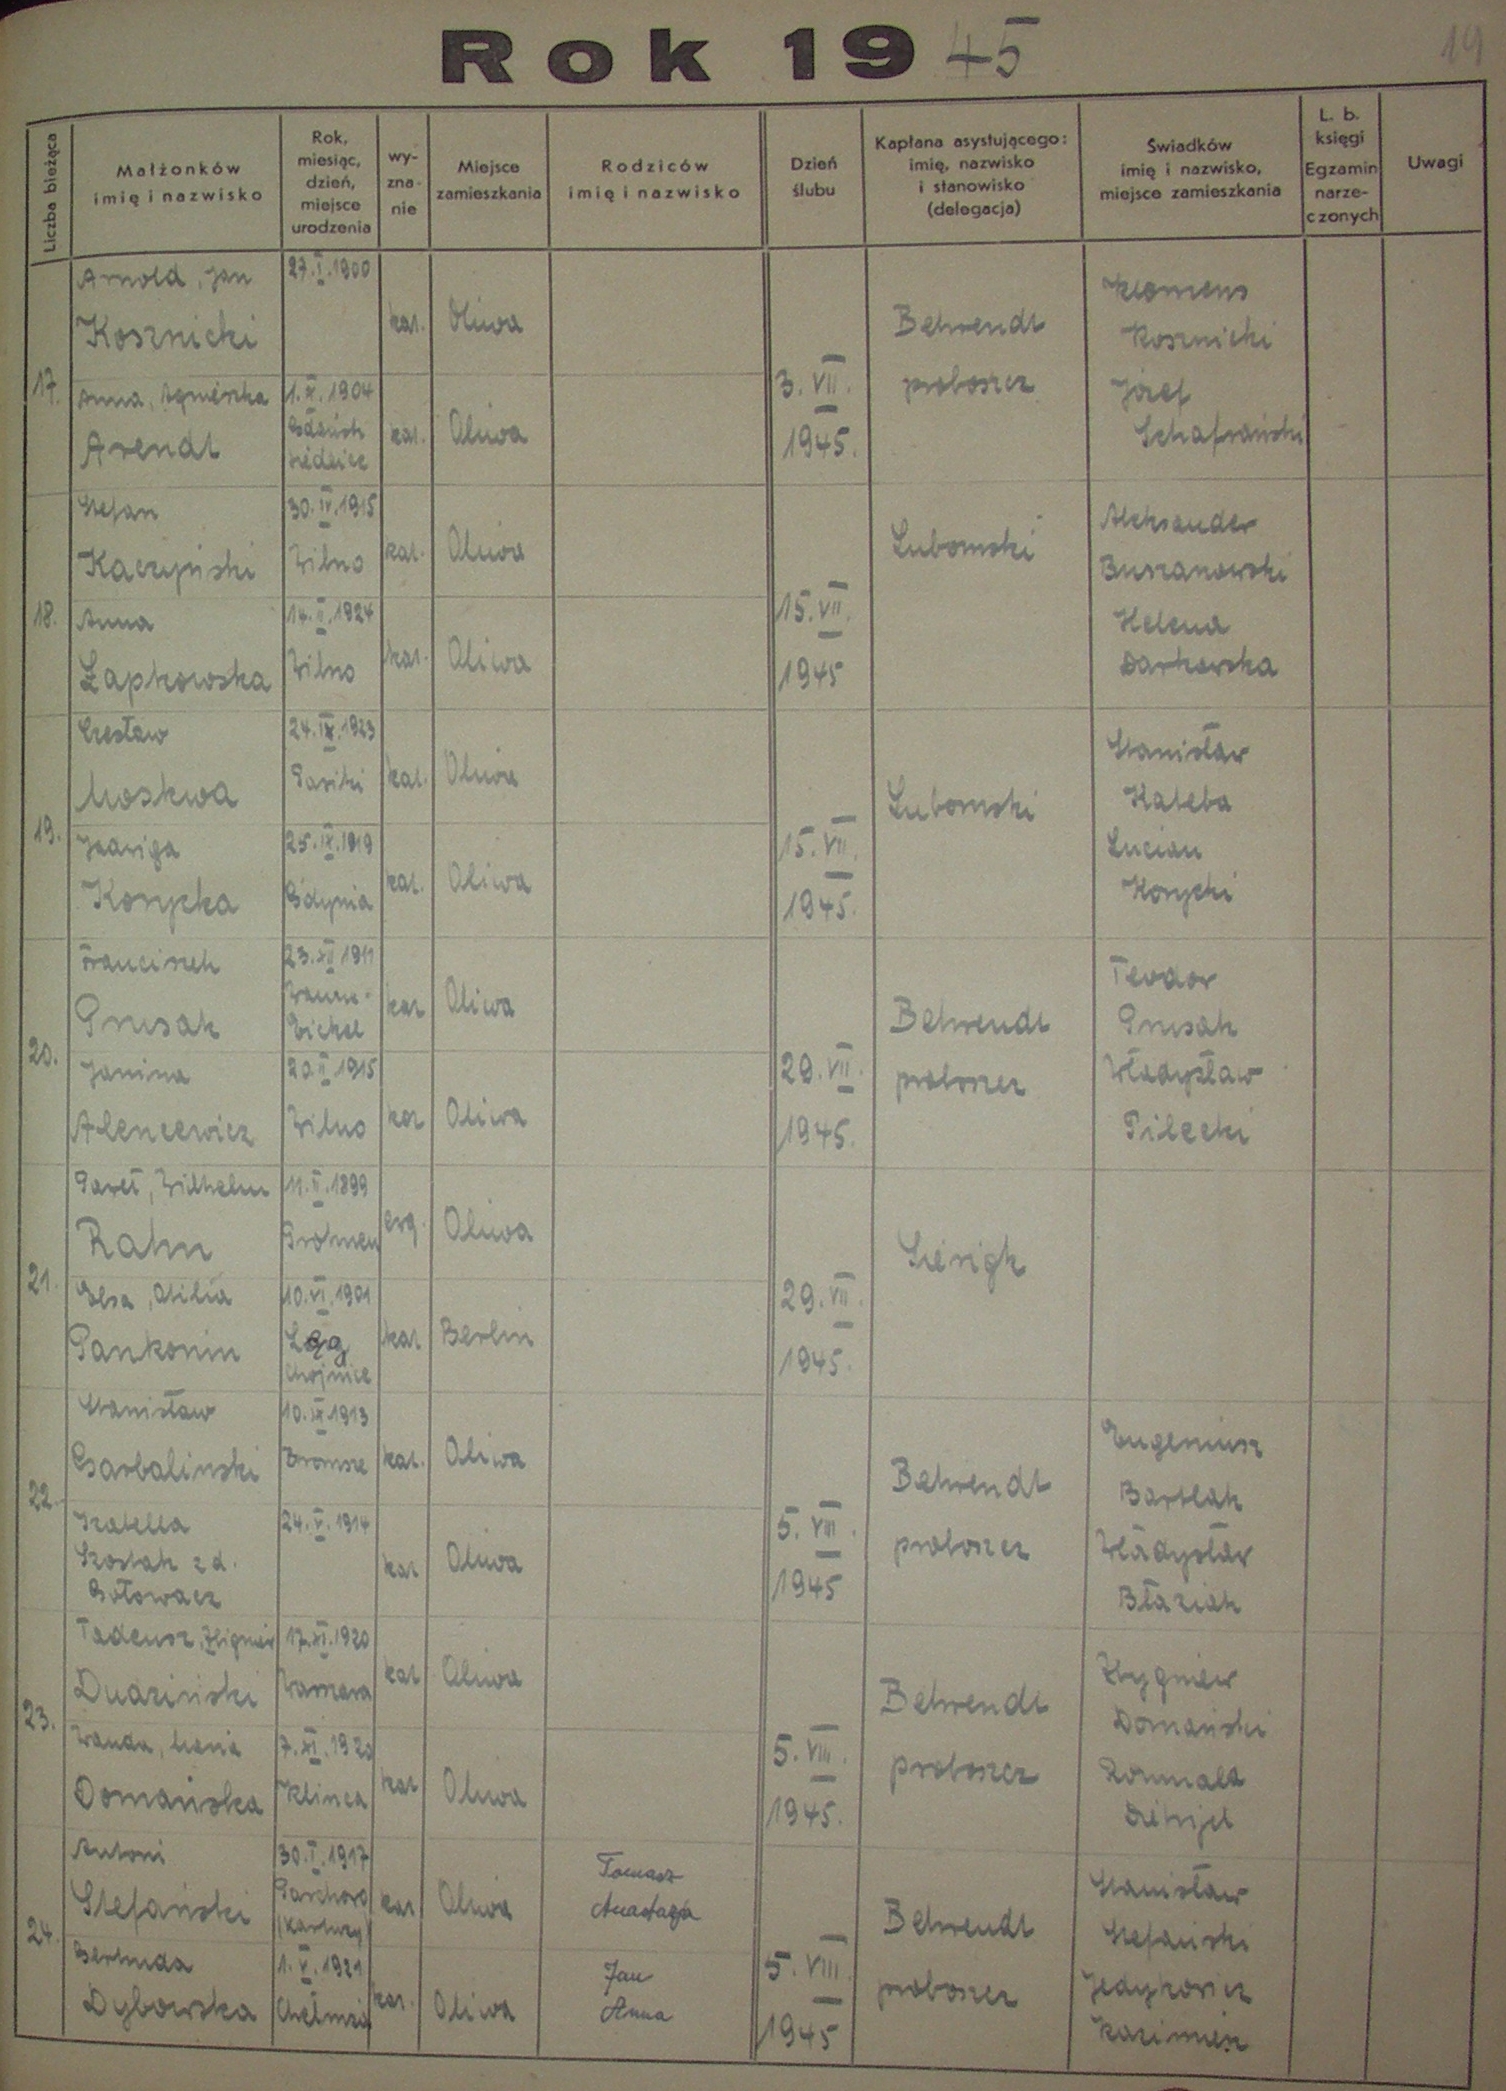 Rok 1945
19
Liczba bieżąca
Małżonków
imię i nazwisko
Rok,
miesiąc,
dzień,
miejsce
urodzenia
wy-
zna-
nie
Miejsce
zamieszkania
Rodziców
imię i nazwisko
Dzień
ślubu
Kapłana asystującego:
imię, nazwisko
i stanowisko
(delegacja)
Świadków
imię i nazwisko,
miejsce zamieszkania
L. b.
księgi
Egzamin
narze-
czonych
Uwagi
17.
Arnold, Jan
Kosznicki
27.I.1900
kat.
Oliwa
Anna, Agnieszka
Arendt
1.X.1904
Gdańsk
kat.
Oliwa
3.VII.
1945.
Behrendt
proboszcz
Klemens
Kosznicki
Józef
Schafrański
18.
Stefan
Kaczyński
30.IV.1915
Wilno
kat.
Oliwa
Anna
Łapkowska
14.II.1924
Wilno
kat.
Oliwa
15.VII.
1945
Lubomski
Aleksander
Buszanowski
Helena
Darkowska
19.
Czesław
Moskwa
24.IX.1923
kat.
Oliwa
Jadwiga
Korycka
25.IX.1919
Gdynia
kat.
Oliwa
15.VII.
1945.
Lubomski
Stanisław
Kaleba
Lucian
Korycki
20.
Franciszek
Prusak
23.XII.1911
kat
Oliwa
Janina
Alencewicz
20.II.1915
Wilno
kat
Oliwa
29.VII.
1945.
Behrendt
proboszcz
Teodor
Prusak
Władysław
Pilecki
21.
Paweł, Wilhelm
Rahn
11.II.1899
ewg.
Oliwa
Elsa, Otilia
Pankonin
10.VI.1901
Łąg
Chojnice
kat
Berlin
29.VII.
1945.
22.
Stanisław
Garbaliński
10.IX.1913
kat.
Oliwa
Izabella
Szostak z d.
Gołowacz
24.V.1914
kat
Oliwa
5.VIII.
1945
Behrendt
proboszcz
Eugeniusz
Bartlak
Władysław
Błaziak
23.
Tadeusz, Zbigniew
Duaziński
17.XI.1920
Warszawa
kat
Oliwa
Wanda, Maria
Domańska
7.XI.1920
Klinca
kat
Oliwa
5.VIII.
1945.
Behrendt
proboszcz
Zbygniew
Domański
Romuald
24.
Antoni
Stefański
30.I.1917
(Kartuzy)
kat
Oliwa
Tomasz
Anastazja
Gertruda
Dybowska
1.V.1921
Chełmża
kat.
Oliwa
Jan
Anna
5.VIII.
1945
Behrendt
proboszcz
Stanisław
Stefański
Jedykowicz
Kazimierz